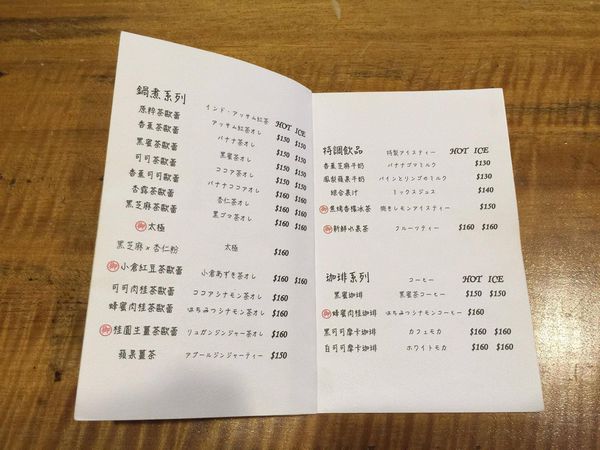 鍋煮系列
インド・アッサム紅茶 HOT ICE
原粹茶歐蕾 アッサム紅茶オレ $150 $150
香蕉茶歐蕾 バナナ茶オレ $150 $150
黑蜜茶歐蕾 黒蜜茶オレ $150 $150
可可茶歐蕾 ココア茶オレ $150 $150
香蕉可可茶歐蕾 バナナココア茶オレ $150 $150
杏露茶歐蕾 杏仁茶オレ $150 $150
黑芝麻茶歐蕾 黒ゴマ茶オレ $150 $150
太極 太極
黑芝麻×杏仁粉 $160
小倉紅豆茶歐蕾 小倉あずき茶オレ $160 $160
可可肉桂茶歐蕾 ココアシナモン茶オレ $160
蜂蜜肉桂茶歐蕾 はちみつシナモン茶オレ $160
桂圓生薑茶歐蕾 リュガンジンジャー茶オレ $160
蘋果薑茶 アプールジンジャーティー $150
特調飲品 特製アイスティー HOT ICE
香蕉芝麻牛奶 バナナゴマミルク $130
鳳梨蘋果牛奶 パインとリンゴのミルク $130
綜合果汁 ミックスジュス $140
焦糖香檸冰茶 焼きレモンアイスティー $150
新鮮水果茶 フルーツティー $160 $160
珈琲系列 コーヒー HOT ICE
黑蜜珈琲 黒蜜茶コーヒー $150 $150
蜂蜜肉桂珈琲 はちみつシナモンコーヒー $160
黑可可摩卡珈琲 カフェモカ $160 $160
白可可摩卡珈琲 ホワイトモカ $160 $160